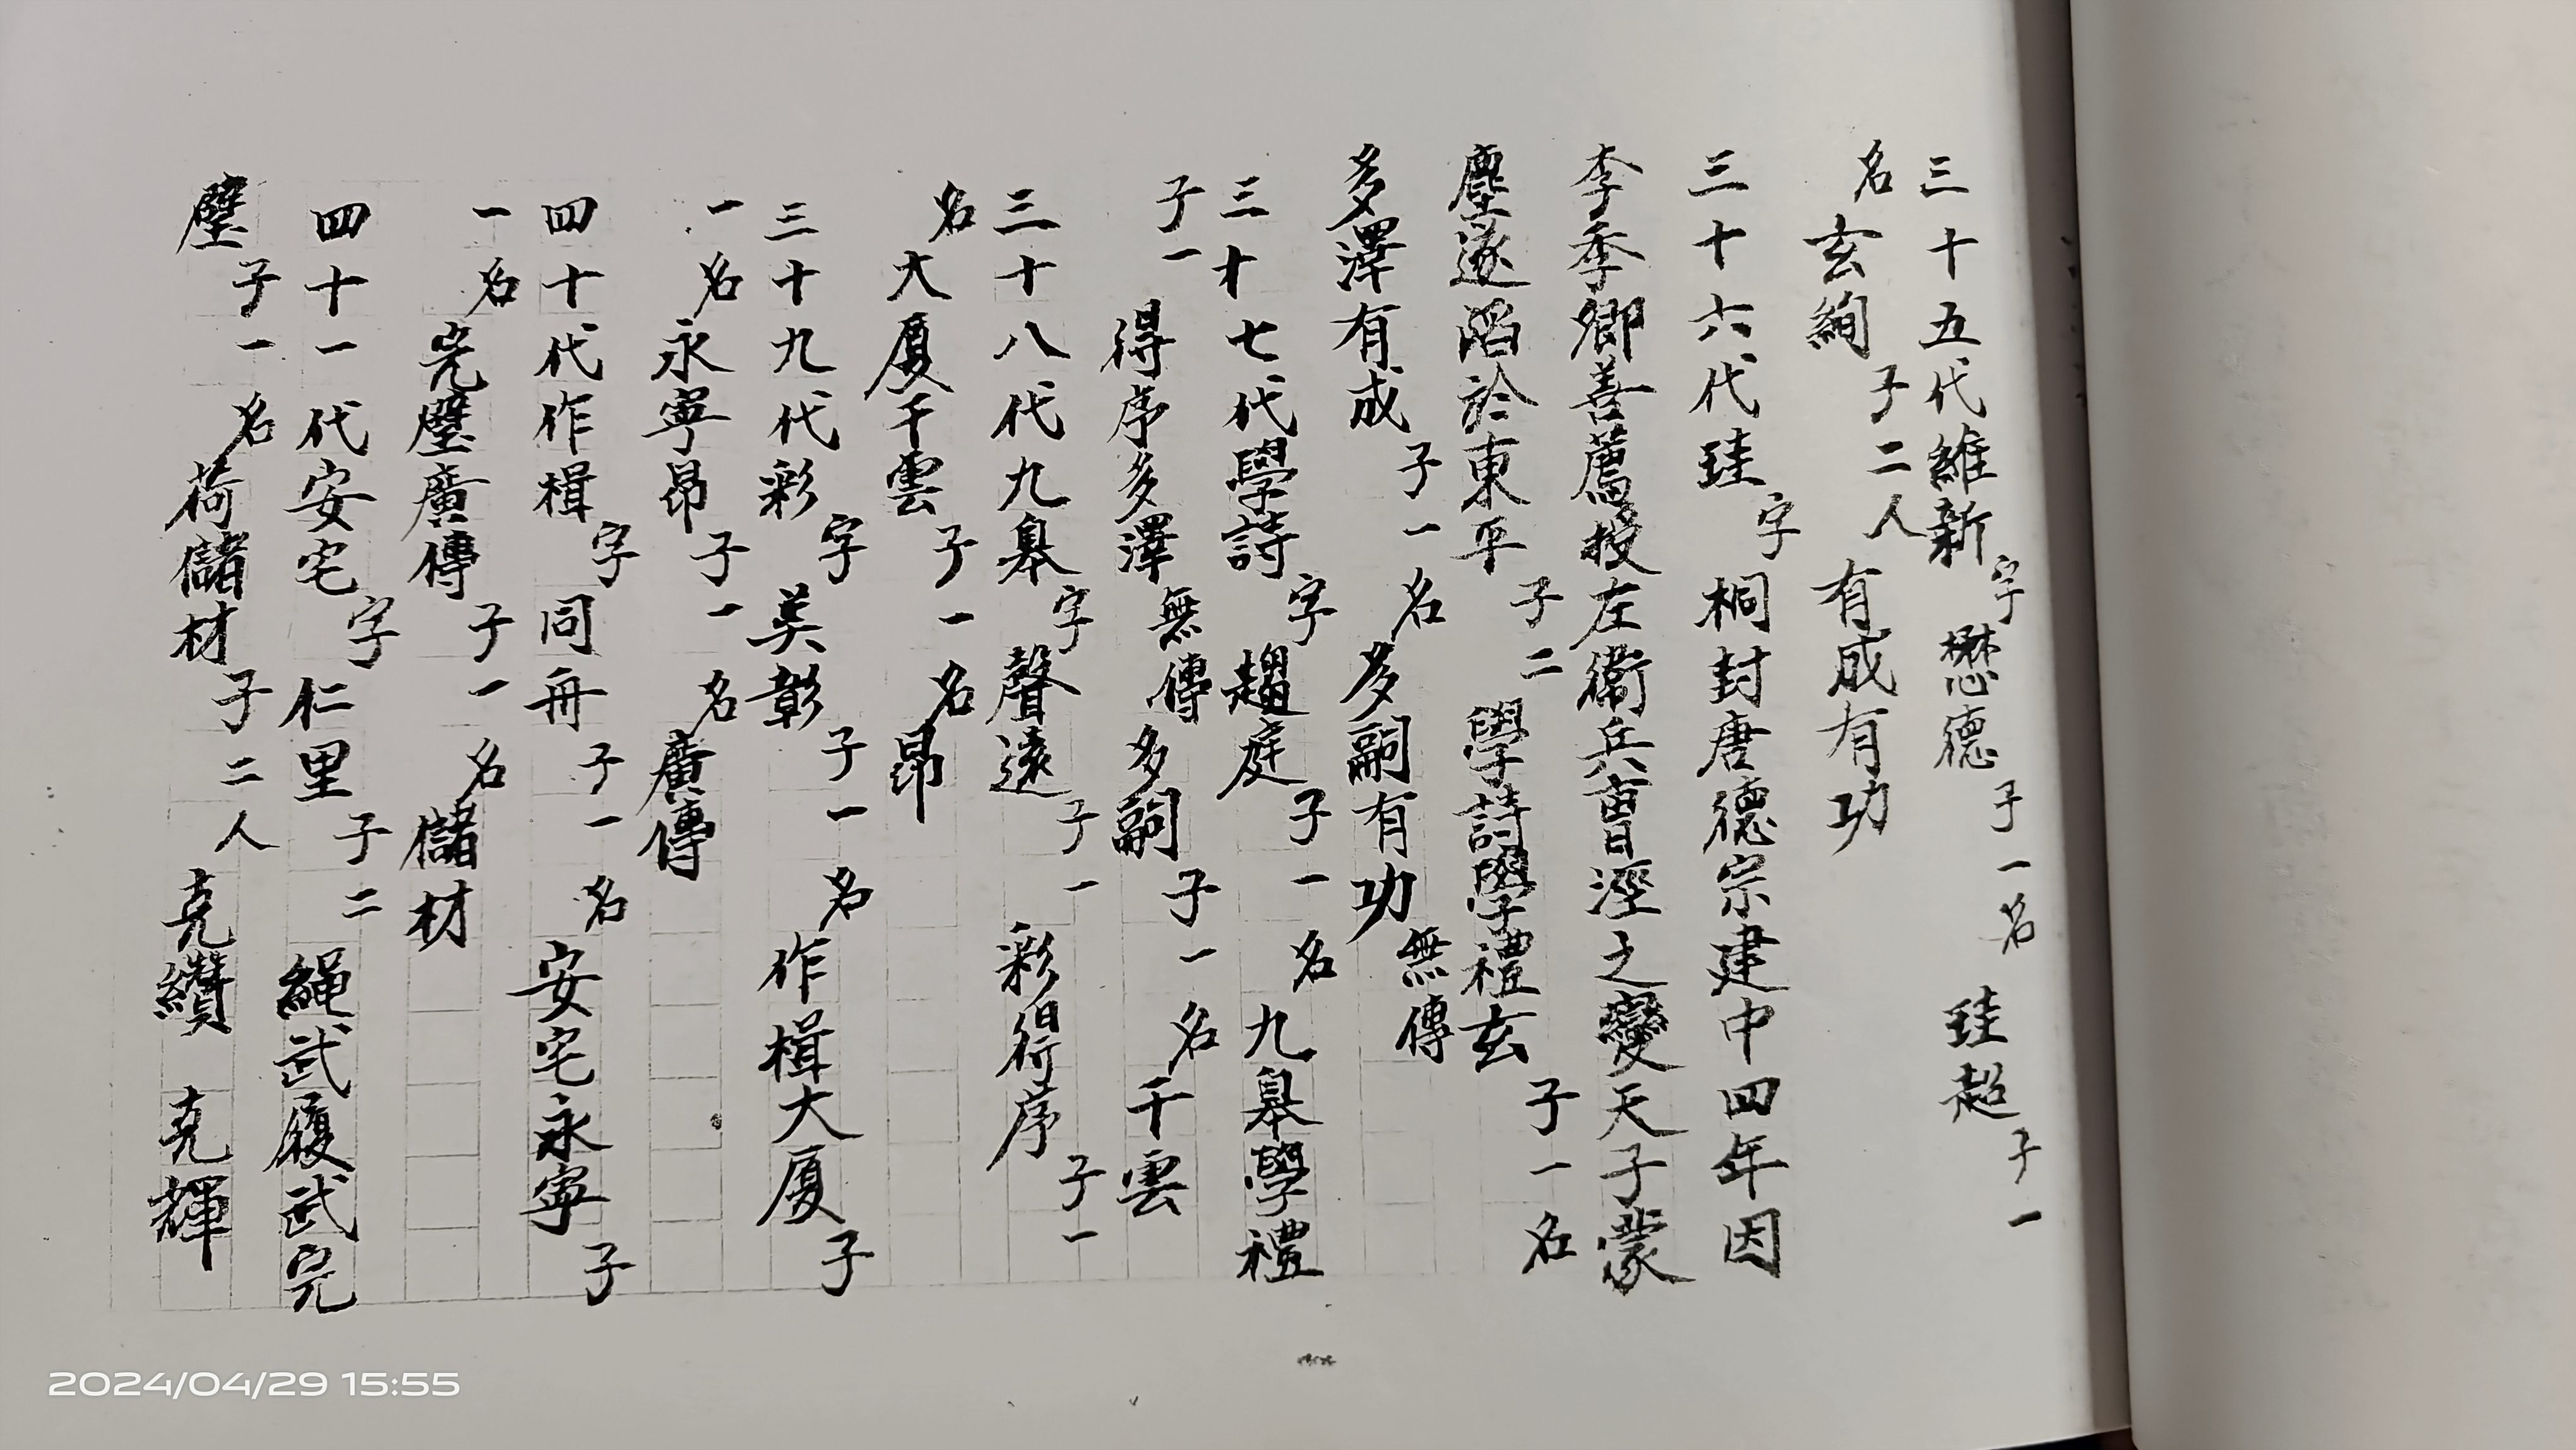 三十五代維新字懋德子一名珪超子一
名玄絢子二人有成有功
三十六代珪字桐封唐德宗建中四年因
李季卿善薦授左衛兵曹涇之變天子蒙
塵遂陷於東平子二學詩學禮玄子一名
多澤有成子一名多嗣有功無傳
三十七代學詩字趨庭子一名九皋學禮
子一得序多澤無傳多嗣子一名千雲
三十八代九皋字聲遠子一彩得序子一
名大厦千雲子一名昂
三十九代彩字美彰子一名作楫大厦子
一名永寧昂子一名廣傳
四十代作楫字同舟子一名安宅永寧子
一名完璧廣傳子一名儲材
四十一代安宅字仁里子二繩武履武完
璧子一名荷儲材子二人克纘克輝
2024/04/29 15:55